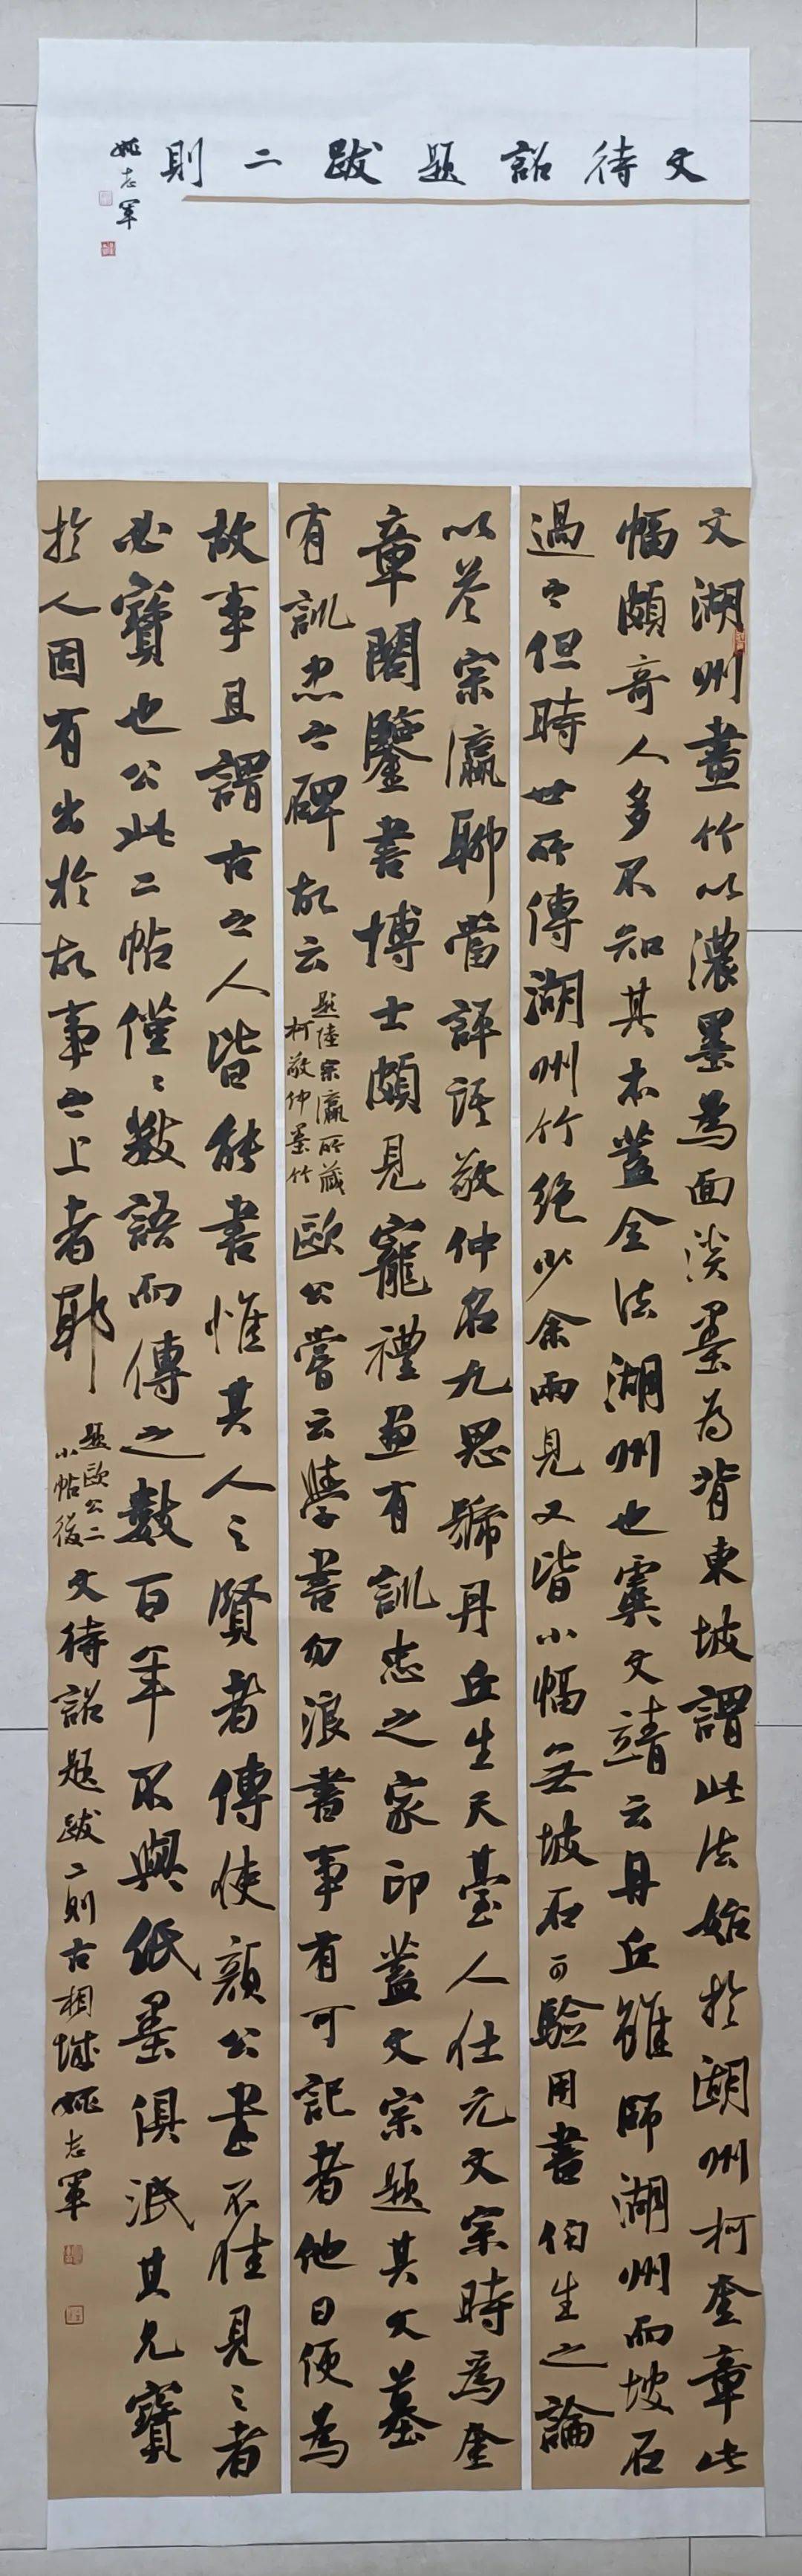 文待詔題跋二則
姚志軍
文湖州畫竹以濃墨為面淡墨為背東坡謂此法始於湖州柯奎章此
幅頗奇人多不知其本蓋全法湖州也虞文靖云丹丘雖師湖州而坡石
過之但時世所傳湖州竹絕少余兩見又皆小幅無坡石可驗用書伯生之論
以答宗瀛聊當評語敬仲名九思號丹丘生天臺人仕元文宗時為奎
章閣鑒書博士頗見寵禮畫有訓忠之家印蓋文宗題其父墓
有訓忠之碑故云
題陸宗瀛所藏
柯敬仲墨竹
歐公嘗云學書勿浪書事有可記者他日便為
故事且謂古之人皆能書惟其人之賢者傳使顏公書不佳見之者
必寶也公此二帖僅僅數語而傳之數百年不與紙墨俱泯其見寶
於人固有出於故事之上者耶
題歐公二
小帖後
文待詔題跋二則古相城姚志軍